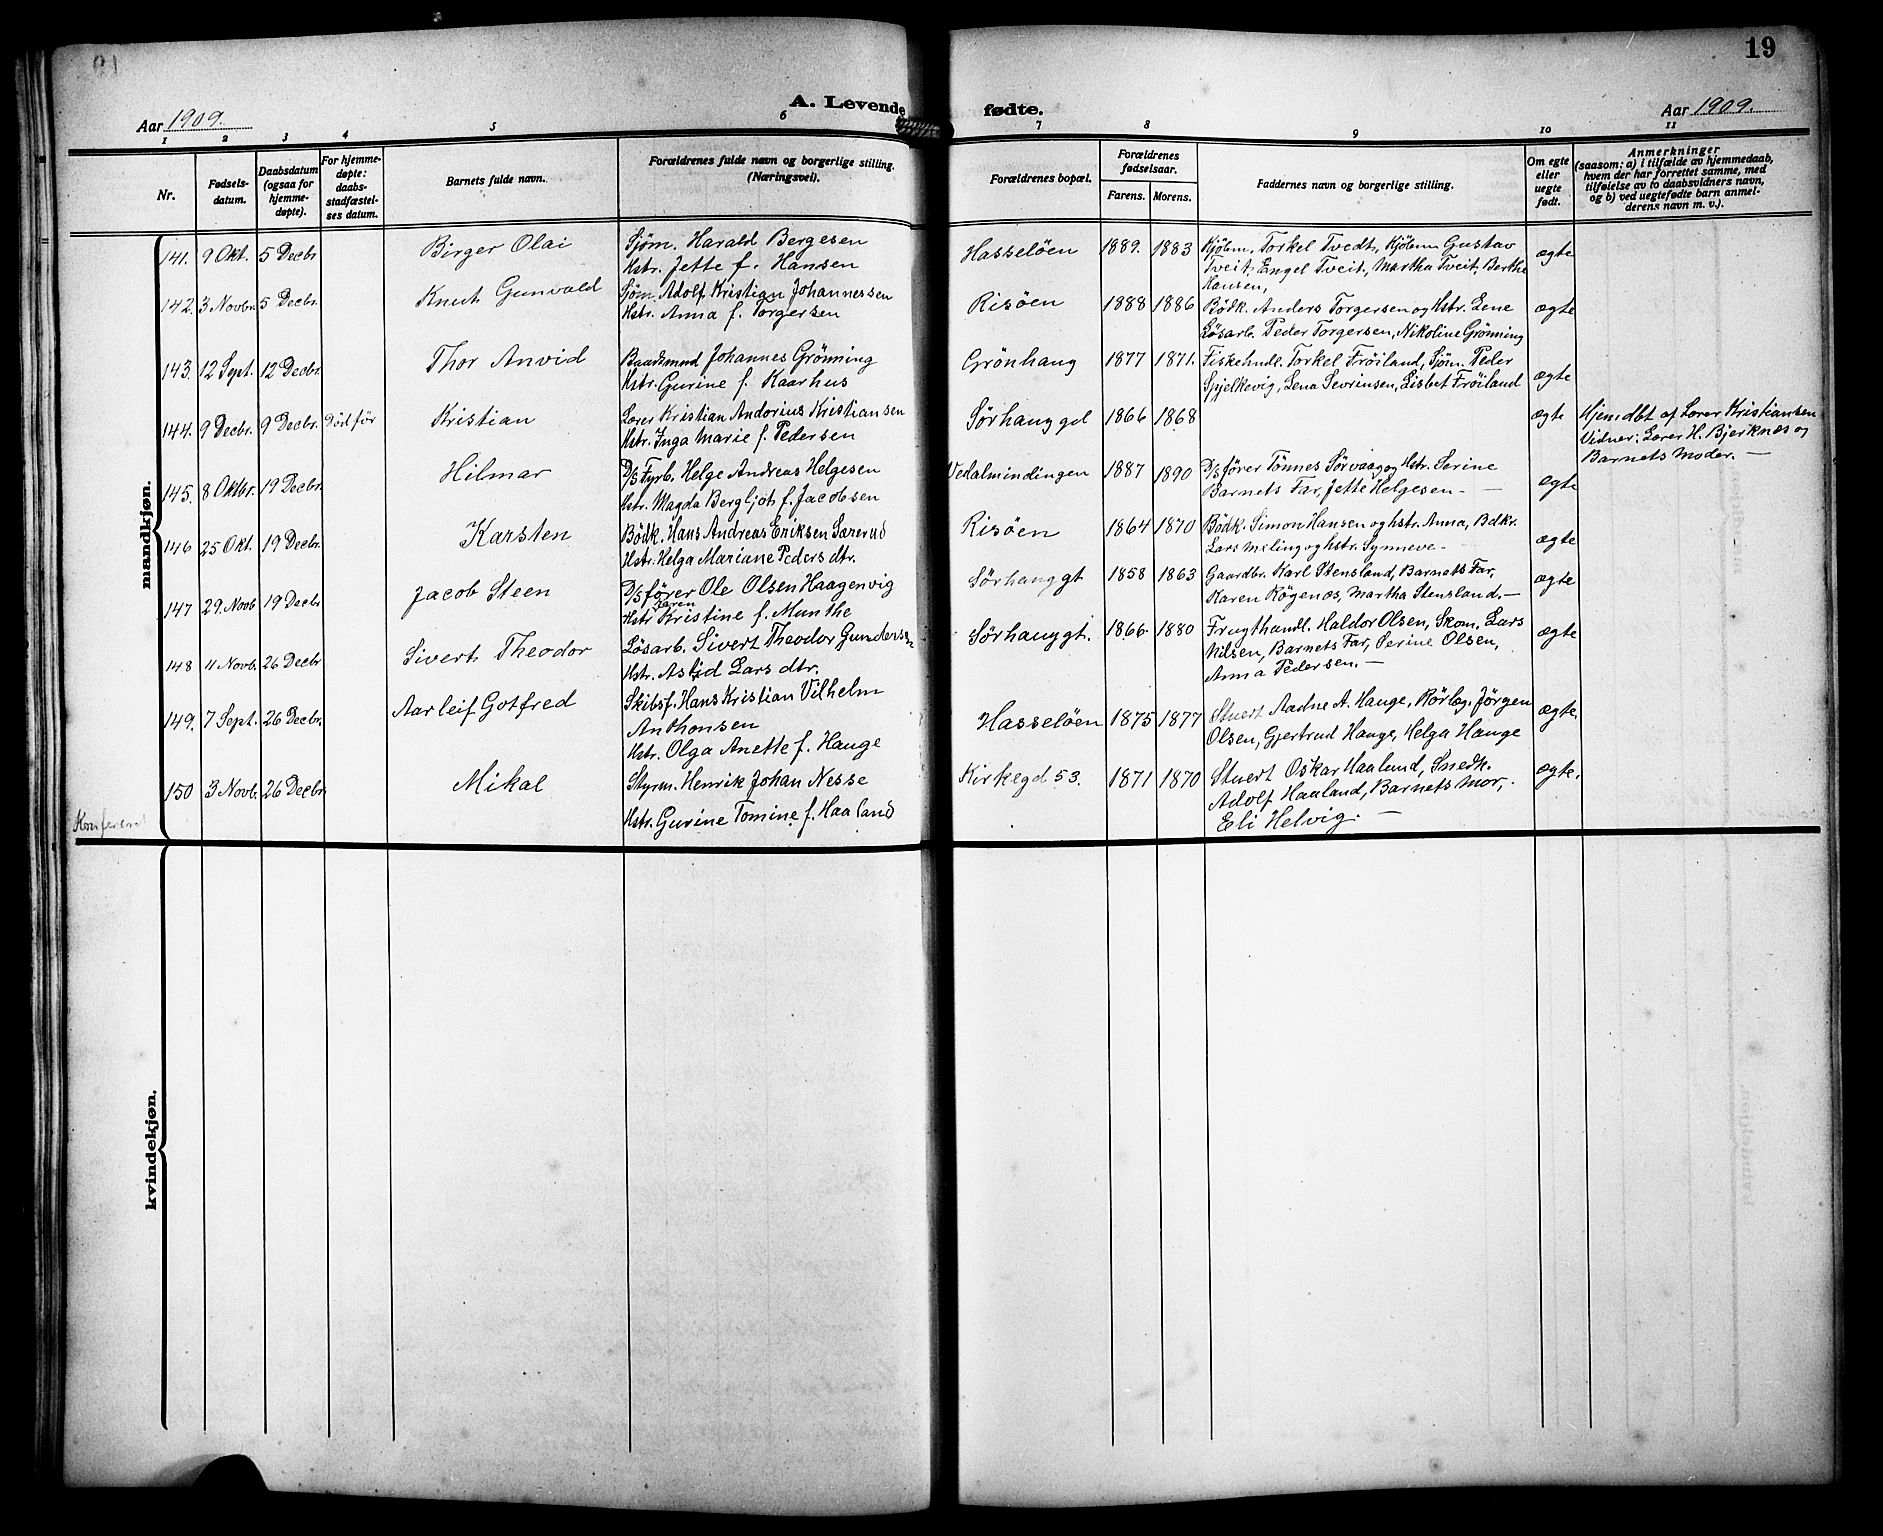 19
A. Levende fødte.
Aar 1909. Aar 1909.
1 2 3 4 5 6 7 8 9 10 11
Nr.
Fødsels-
datum.
Daabsdatum
(ogsaa for
hjemme-
døpte).
For hjemme-
døpte:
daabs-
stadfæstel-
ses datum.
Barnets fulde navn.
Forældrenes fulde navn og borgerlige stilling.
(Næringsvei).
Forældrenes bopæl.
Forældrenes
fødselsaar.
Farens. Morens.
Faddernes navn og borgerlige stilling.
Om egte
eller
uegte
født.
Anmerkninger
(saasom: a) i tilfælde av hjemmedaab,
hvem der har forrettet samme, med
tilføielse av to daabsvidners navn,
og b) ved uegtefødte barn anmel-
derens navn m. v.).
mandkjøn.
141. 9 Okt. 5 Decbr Birger Olai
Sjøm. Harald Bergesen
Hstr. Jette f. Hansen
Hasseløen 1889. 1883
Kjøbm. Torkel Tvedt, Kjøbm Gustav
Tveit, Engel Tveit, Martha Tveit, Berthe
Hansen,
ægte
142. 3 Novbr. 5 Decbr. Knut Gunvald
Sjøm. Adolf Kristian Johannessen
Hstr. Anna f. Torgersen
Risøen 1888 1886
Bødk. Anders Torgersen og Hstr. Lene
Løsarb. Peder Torgersen, Nikoline Grønning
ægte
143. 12 Sept. 12 Decbr. Thor Anvid
Baadsmnd Johannes Grønning
Hstr. Gurine f. Kaarhus
Grønhaug 1877 1871.
Fiskehndl. Torkel Frøiland, Sjøm. Peder
Spjelkevig, Lena Sevrinsen, Lisbet Frøiland
ægte
144. 9 Decbr. 9 Decbr. Död før Kristian
Lærer Kristian Andorius Kristiansen
Hstr. Inga Marie f. Pedersen
Sørhauggd 1866 1868
ægte
Hjemdbt af Lærer Kristiansen
Vidner: Lærer H. Bjerknæs og
Barnets Moder. —
145. 8 Oktbr. 19 Decbr. Hilmar
D/S Fyrb. Helge Andreas Helgesen
Hstr. Magda Bergljot f. Jacobsen
Vedalmindingen 1887 1890
D/S fører Tønnes Sørvaag og Hstr. Serine
Barnets Far, Jette Helgesen. —
ægte
146 25 Okt. 19 Decbr. Karsten
Bødk. Hans Andreas Eriksen Særerud
Hstr. Helga Mariane Peders dtr.
Risøen 1864 1870
Bødk. Simon Hansen og hstr. Anna, Bdkr.
Lars Meling og hstr. Synneve —
ægte
147 29. Novb 19 Decbr Jacob Steen
D/S fører Ole Olsen Haagenvig
Hstr Karen Kristine f. Munthe
Sørhauggt 1858 1863
Gaardbr. Karl Stensland, Barnets Far,
Karen Røgenæs, Martha Stensland, —
ægte
148 4 Novb. 26 Decbr Sivert Theodor
Løsarb. Sivert Theodor Gundersen
Hstr. Astrid Lars dtr.
Sørhauggt. 1866. 1880
Frugthandl. Haldor Olsen, Skom. Lars
Nilsen, Barnets Far, Serine Olsen,
Anna Pedersen. —
ægte
149. 7 Sept. 26 Decbr. Aarleif Gotfred
Skibsf. Hans Kristian Vilhelm
Anthonsen
Hstr. Olga Anette f. Hauge
Hasseløen 1875 1877
Stuert Aadne A. Hauge, Rørlæg. Jørgen
Olsen, Gjertrud Hauge, Helga Hauge
ægte.
150 3 Novb. 26 Decbr Mikal
Styrm. Henrik Johan Nesse
Hstr. Gurine Tomine f. Haaland
Kirkegd 53. 1871 1870
Stuert Oskar Haaland, Snedk.
Adolf Haaland, Barnets Mor,
Eli Helvig. —
ægte.
kvindekjøn.